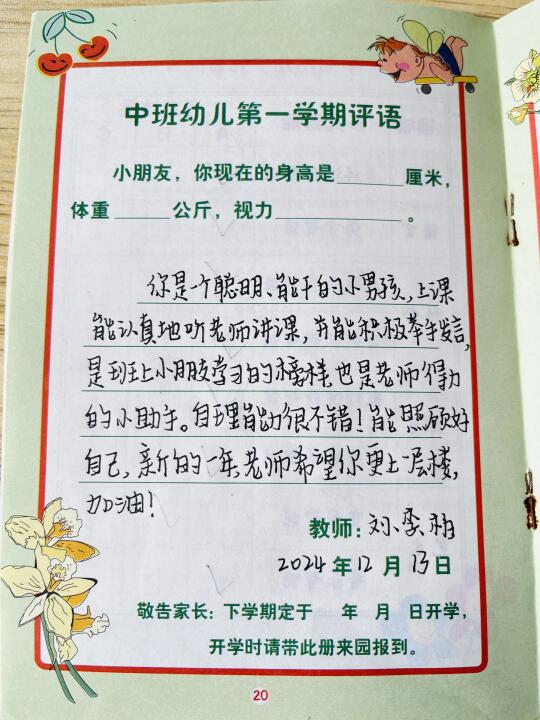 中班幼儿第一学期评语
小朋友，你现在的身高是______厘米，
体重______公斤，视力______________。
你是一个聪明、能干的小男孩，上课
能认真地听老师讲课，并能积极举手发言，
是班上小朋友学习的榜样，也是老师得力
的小助手。自理能动很不错！能照顾好
自己，新的一年老师希望你更上一层楼，
加油！
教师：刘季
2024年12月13日
敬告家长：下学期定于 年 月 日开学，
开学时请带此册来园报到。
20